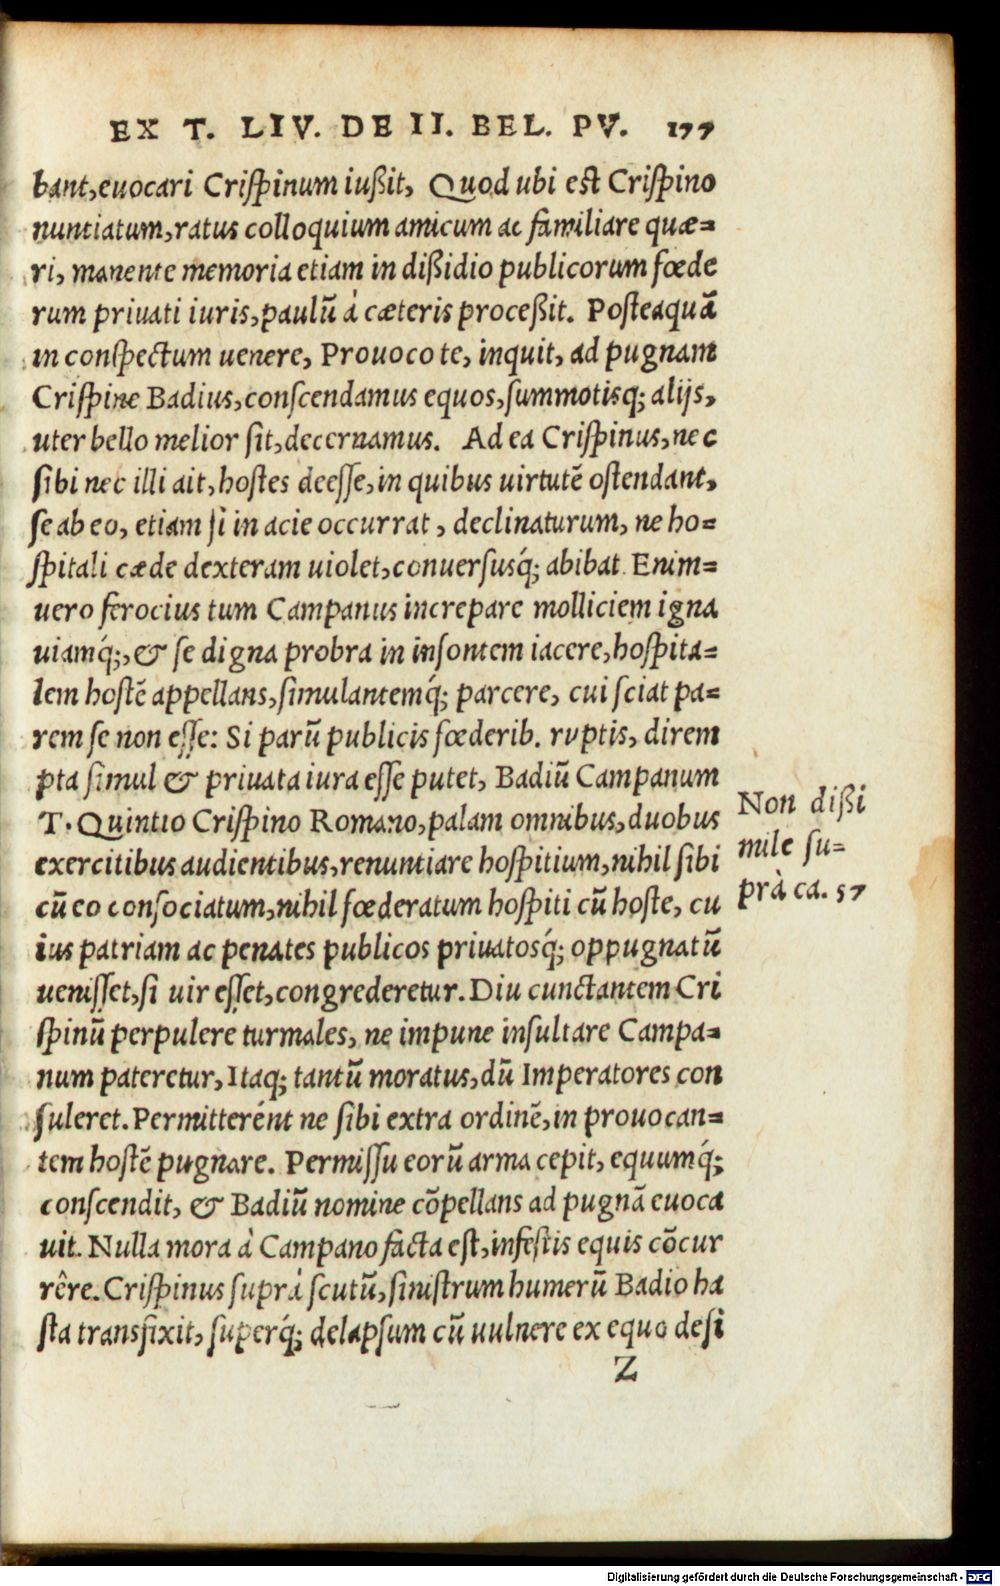 EX T. LIV. DE II. BEL. PV. 177
bant, euocari Criſpinum iußit, Quod ubi est Criſpino
nuntiatum, ratus colloquium amicum ac familiare quæ=
ri, manente memoria etiam in dißidio publicorum fœde
rum priuati iuris, paulũ à cæteris proceßit. Poſteaquã
in conſpectum uenere, Prouoco te, inquit, ad pugnam
Criſpine Badius, conſcendamus equos, ſummotisq; alijs,
uter bello melior ſit, decernamus. Ad ea Criſpinus, nec
ſibi nec illi ait, hoſtes deeſſe, in quibus uirtutẽ oſtendant,
ſe ab eo, etiam ſi in acie occurrat, declinaturum, ne ho=
ſpitali cæde dexteram uiolet, conuerſusq́; abibat. Enim=
uero ferocius tum Campanus increpare molliciem igna
uiamq́;, & ſe digna probra in inſontem iacere, hoſpita=
lem hoſtẽ appellans, ſimulantemq́; parcere, cui ſciat pa=
rem ſe non eſſe: Si parũ publicis fœderib. ruptis, direm
pta ſimul & priuata iura eſſe putet, Badiũ Campanum
T. Quintio Criſpino Romano, palam omnibus, duobus
exercitibus audientibus, renuntiare hoſpitium, nihil ſibi
cũ eo conſociatum, nihil fœderatum hoſpiti cũ hoſte, cu
ius patriam ac penates publicos priuatosq́; oppugnatũ
ueniſſet, ſi uir eſſet, congrederetur. Diu cunctantem Cri
ſpinũ perpulere turmales, ne impune inſultare Campa=
num pateretur, Itaq; tantũ moratus, dũ Imperatores con
ſuleret. Permitterént ne ſibi extra ordinẽ, in prouocan=
tem hoſtẽ pugnare. Permiſſu eorũ arma cepit, equumq́;
conſcendit, & Badiũ nomine cõpellans ad pugnã euoca
uit. Nulla mora à Campano facta eſt, infeſtis equis cõcur
rêre. Criſpinus ſuprà ſcutũ, ſiniſtrum humerũ Badio ha
ſta transfixit, ſuperq́; delapſum cũ uulnere ex equo deſi
Z
Non dißi
mile ſu=
prà ca. 57
Digitalisierung gefördert durch die Deutsche Forschungsgemeinschaft - DFG